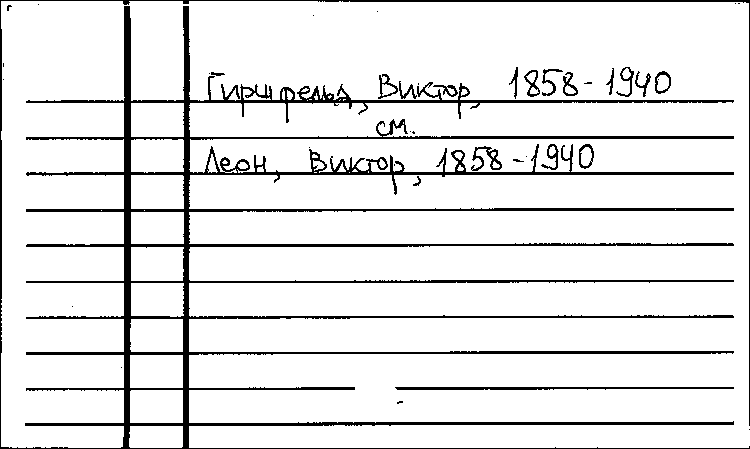 Гиршфельд, Виктор, 1858-1940
см.
Леон, Виктор, 1858-1940